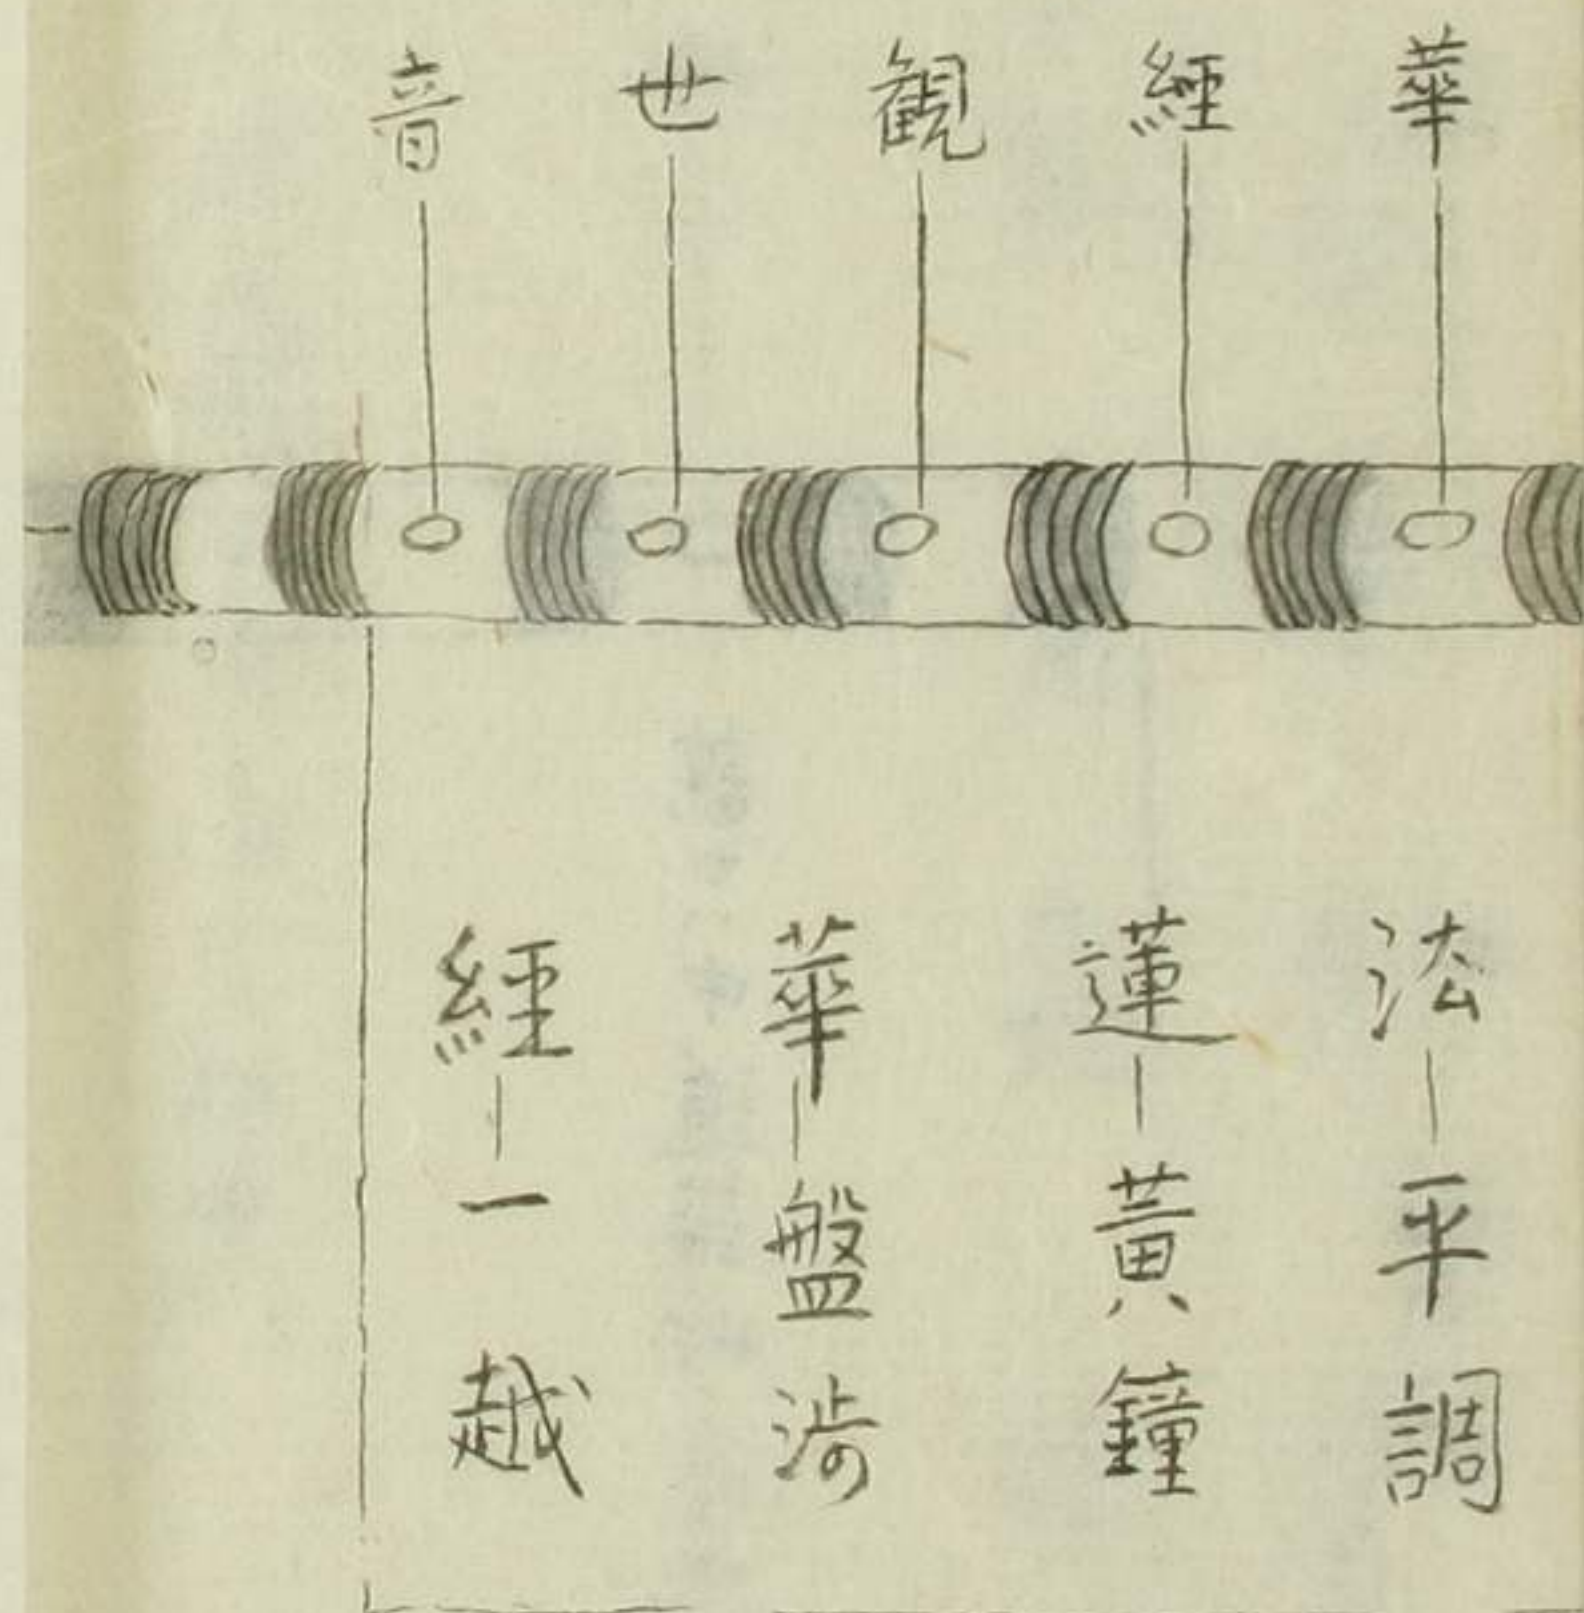 華
經
観
世
音
法 平調
蓮 黄鐘
華 盤渉
經 一越